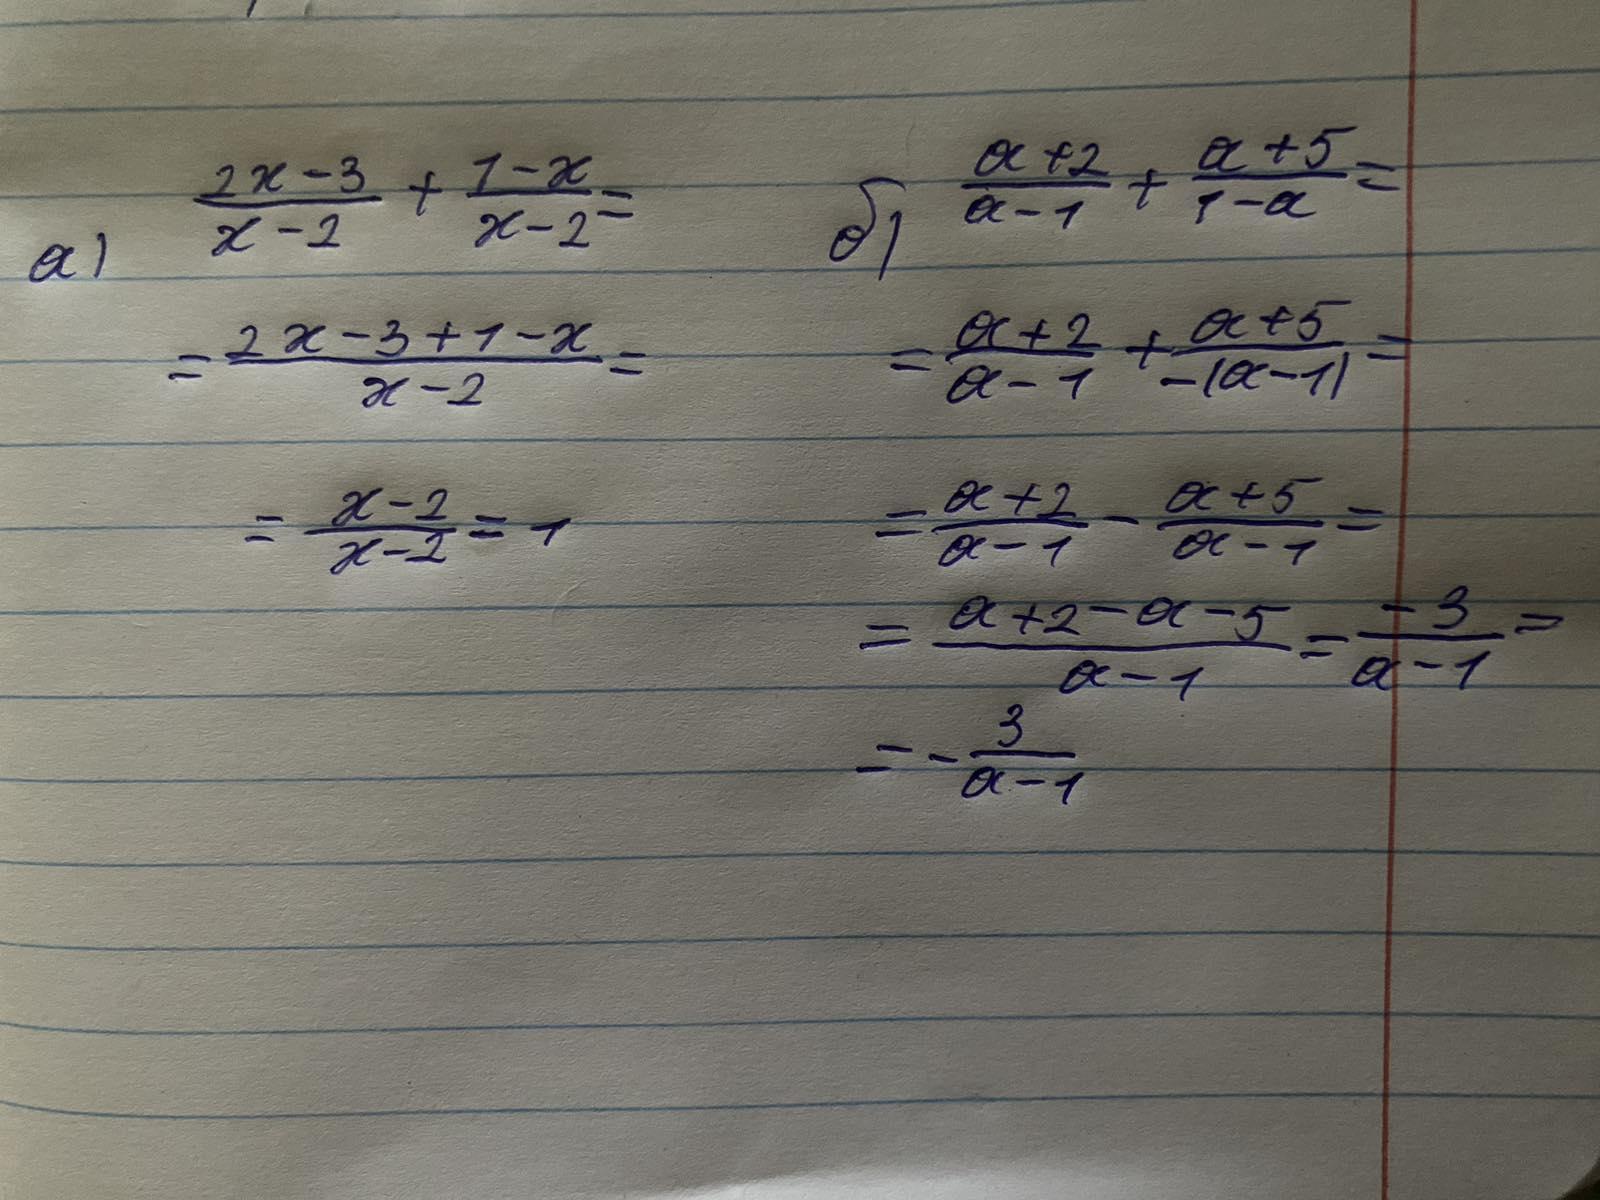 а) (2x-3)/(x-2) + (1-x)/(x-2) =
= (2x-3+1-x)/(x-2) =
= (x-2)/(x-2) = 1
б) (a+2)/(a-1) + (a+5)/(1-a) =
= (a+2)/(a-1) + (a+5)/(-(a-1)) =
= (a+2)/(a-1) - (a+5)/(a-1) =
= (a+2-a-5)/(a-1) = (-3)/(a-1) =
= - 3/(a-1)